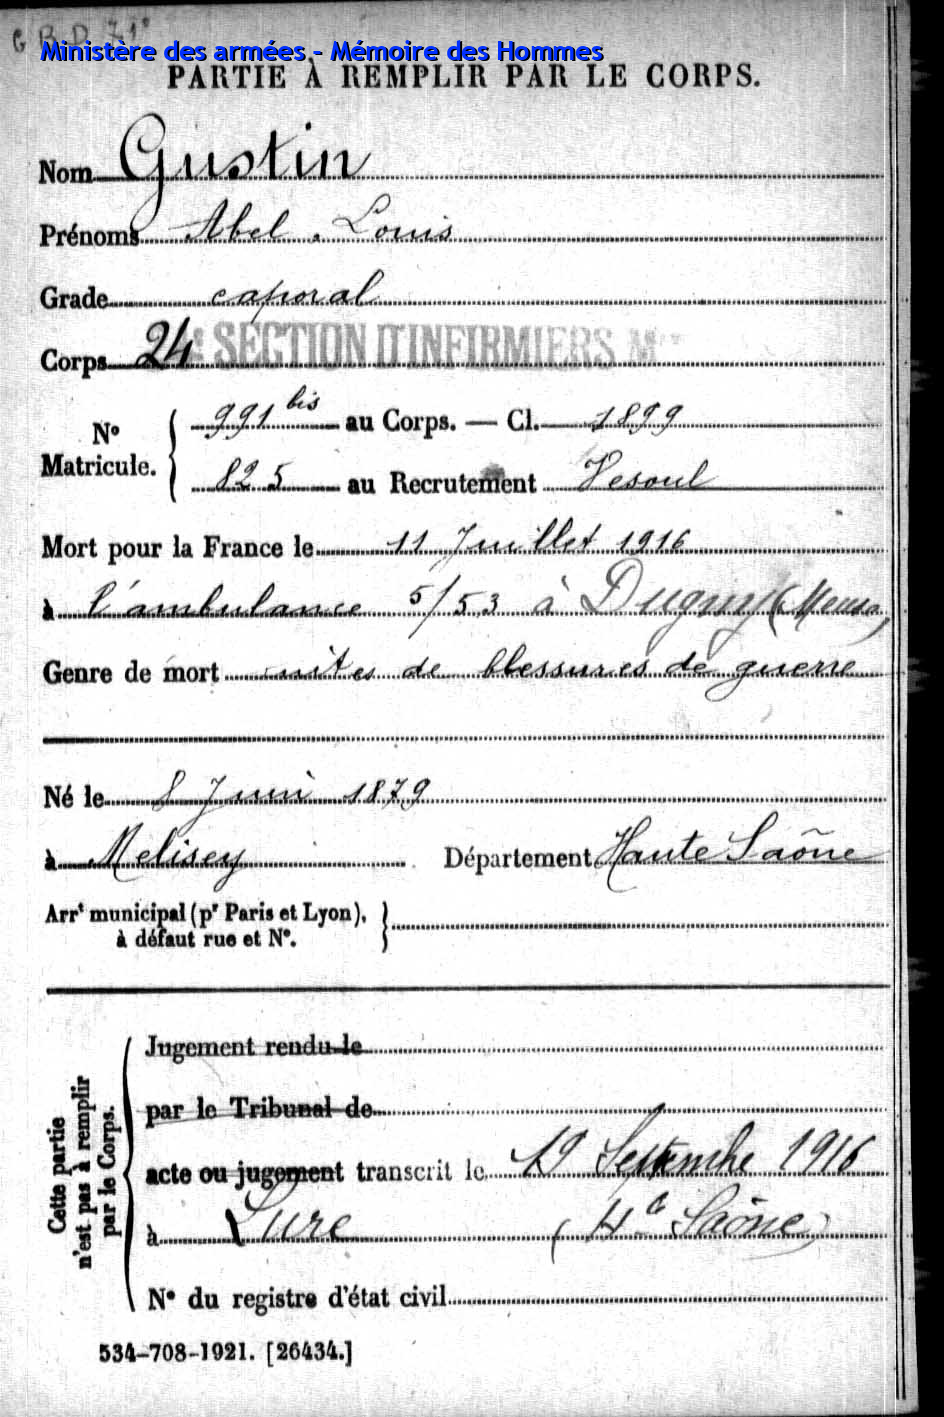 G B D 71e
Ministère des armées - Mémoire des Hommes
PARTIE À REMPLIR PAR LE CORPS.
Nom Gustin
Prénoms Abel. Louis
Grade caporal
Corps 24e SECTION D'INFIRMIERS Mres
991 bis au Corps. — Cl. 1899
No Matricule.
825 au Recrutement Vesoul
Mort pour la France le 11 Juillet 1916
à l'ambulance 5/53 à Dugny (Meuse)
Genre de mort suites de blessures de guerre
Né le 8 Juin 1879
à Melisey Département Haute Saône
Arrt municipal (pr Paris et Lyon),
à défaut rue et No.
Cette partie
n'est pas à remplir
par le Corps.
Jugement rendu le
par le Tribunal de
acte ou jugement transcrit le 19 Septembre 1916
à Lure (Hte Saône)
No du registre d'état civil
534-708-1921. [26434.]